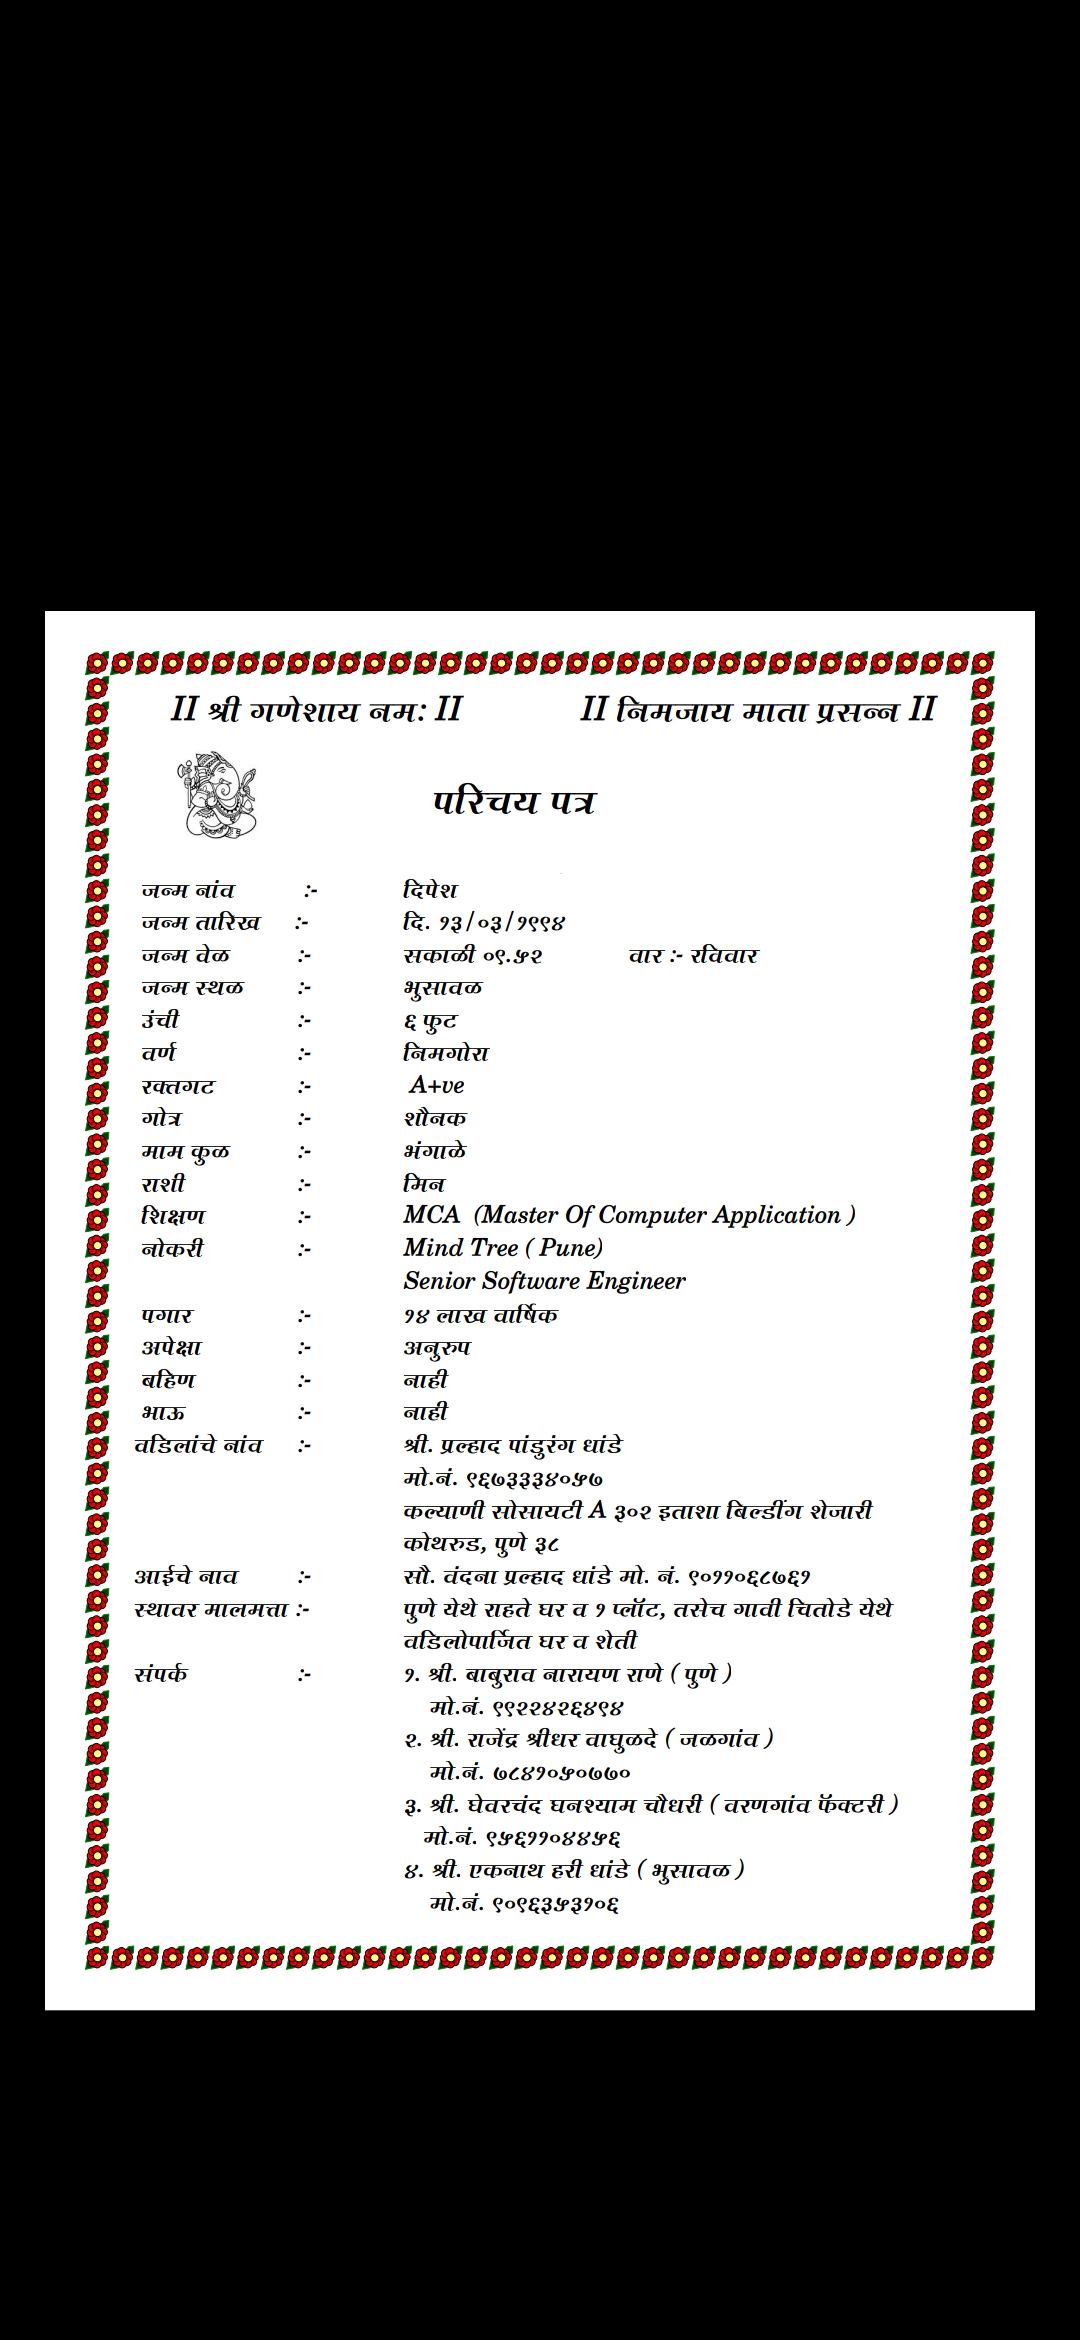 II श्री गणेशाय नम: II II निमजाय माता प्रसन्न II
परिचय पत्र
जन्म नांव :- दिपेश
जन्म तारिख :- दि. १३/०३/१९९४
जन्म वेळ :- सकाळी ०९.५२ वार :- रविवार
जन्म स्थळ :- भुसावळ
उंची :- ६ फुट
वर्ण :- निमगोरा
रक्तगट :- A+ve
गोत्र :- शौनक
माम कुळ :- भंगाळे
राशी :- मिन
शिक्षण :- MCA (Master Of Computer Application )
नोकरी :- Mind Tree ( Pune)
Senior Software Engineer
पगार :- १४ लाख वार्षिक
अपेक्षा :- अनुरुप
बहिण :- नाही
भाऊ :- नाही
वडिलांचे नांव :- श्री. प्रल्हाद पांडुरंग धांडे
मो.नं. ९६७३३३४०५७
कल्याणी सोसायटी A ३०२ इताशा बिल्डींग शेजारी
कोथरुड, पुणे ३८
आईचे नाव :- सौ. वंदना प्रल्हाद धांडे मो. नं. ९०११०६८७६१
स्थावर मालमत्ता :- पुणे येथे राहते घर व १ प्लॉट, तसेच गावी चितोडे येथे
वडिलोपार्जित घर व शेती
संपर्क :- १. श्री. बाबुराव नारायण राणे ( पुणे )
मो.नं. ९९२२४२६४९४
२. श्री. राजेंद्र श्रीधर वाघुळदे ( जळगांव )
मो.नं. ७८४१०५०७७०
३. श्री. घेवरचंद घनश्याम चौधरी ( वरणगांव फॅक्टरी )
मो.नं. ९५६११०४४५६
४. श्री. एकनाथ हरी धांडे ( भुसावळ )
मो.नं. ९०९६३५३१०६